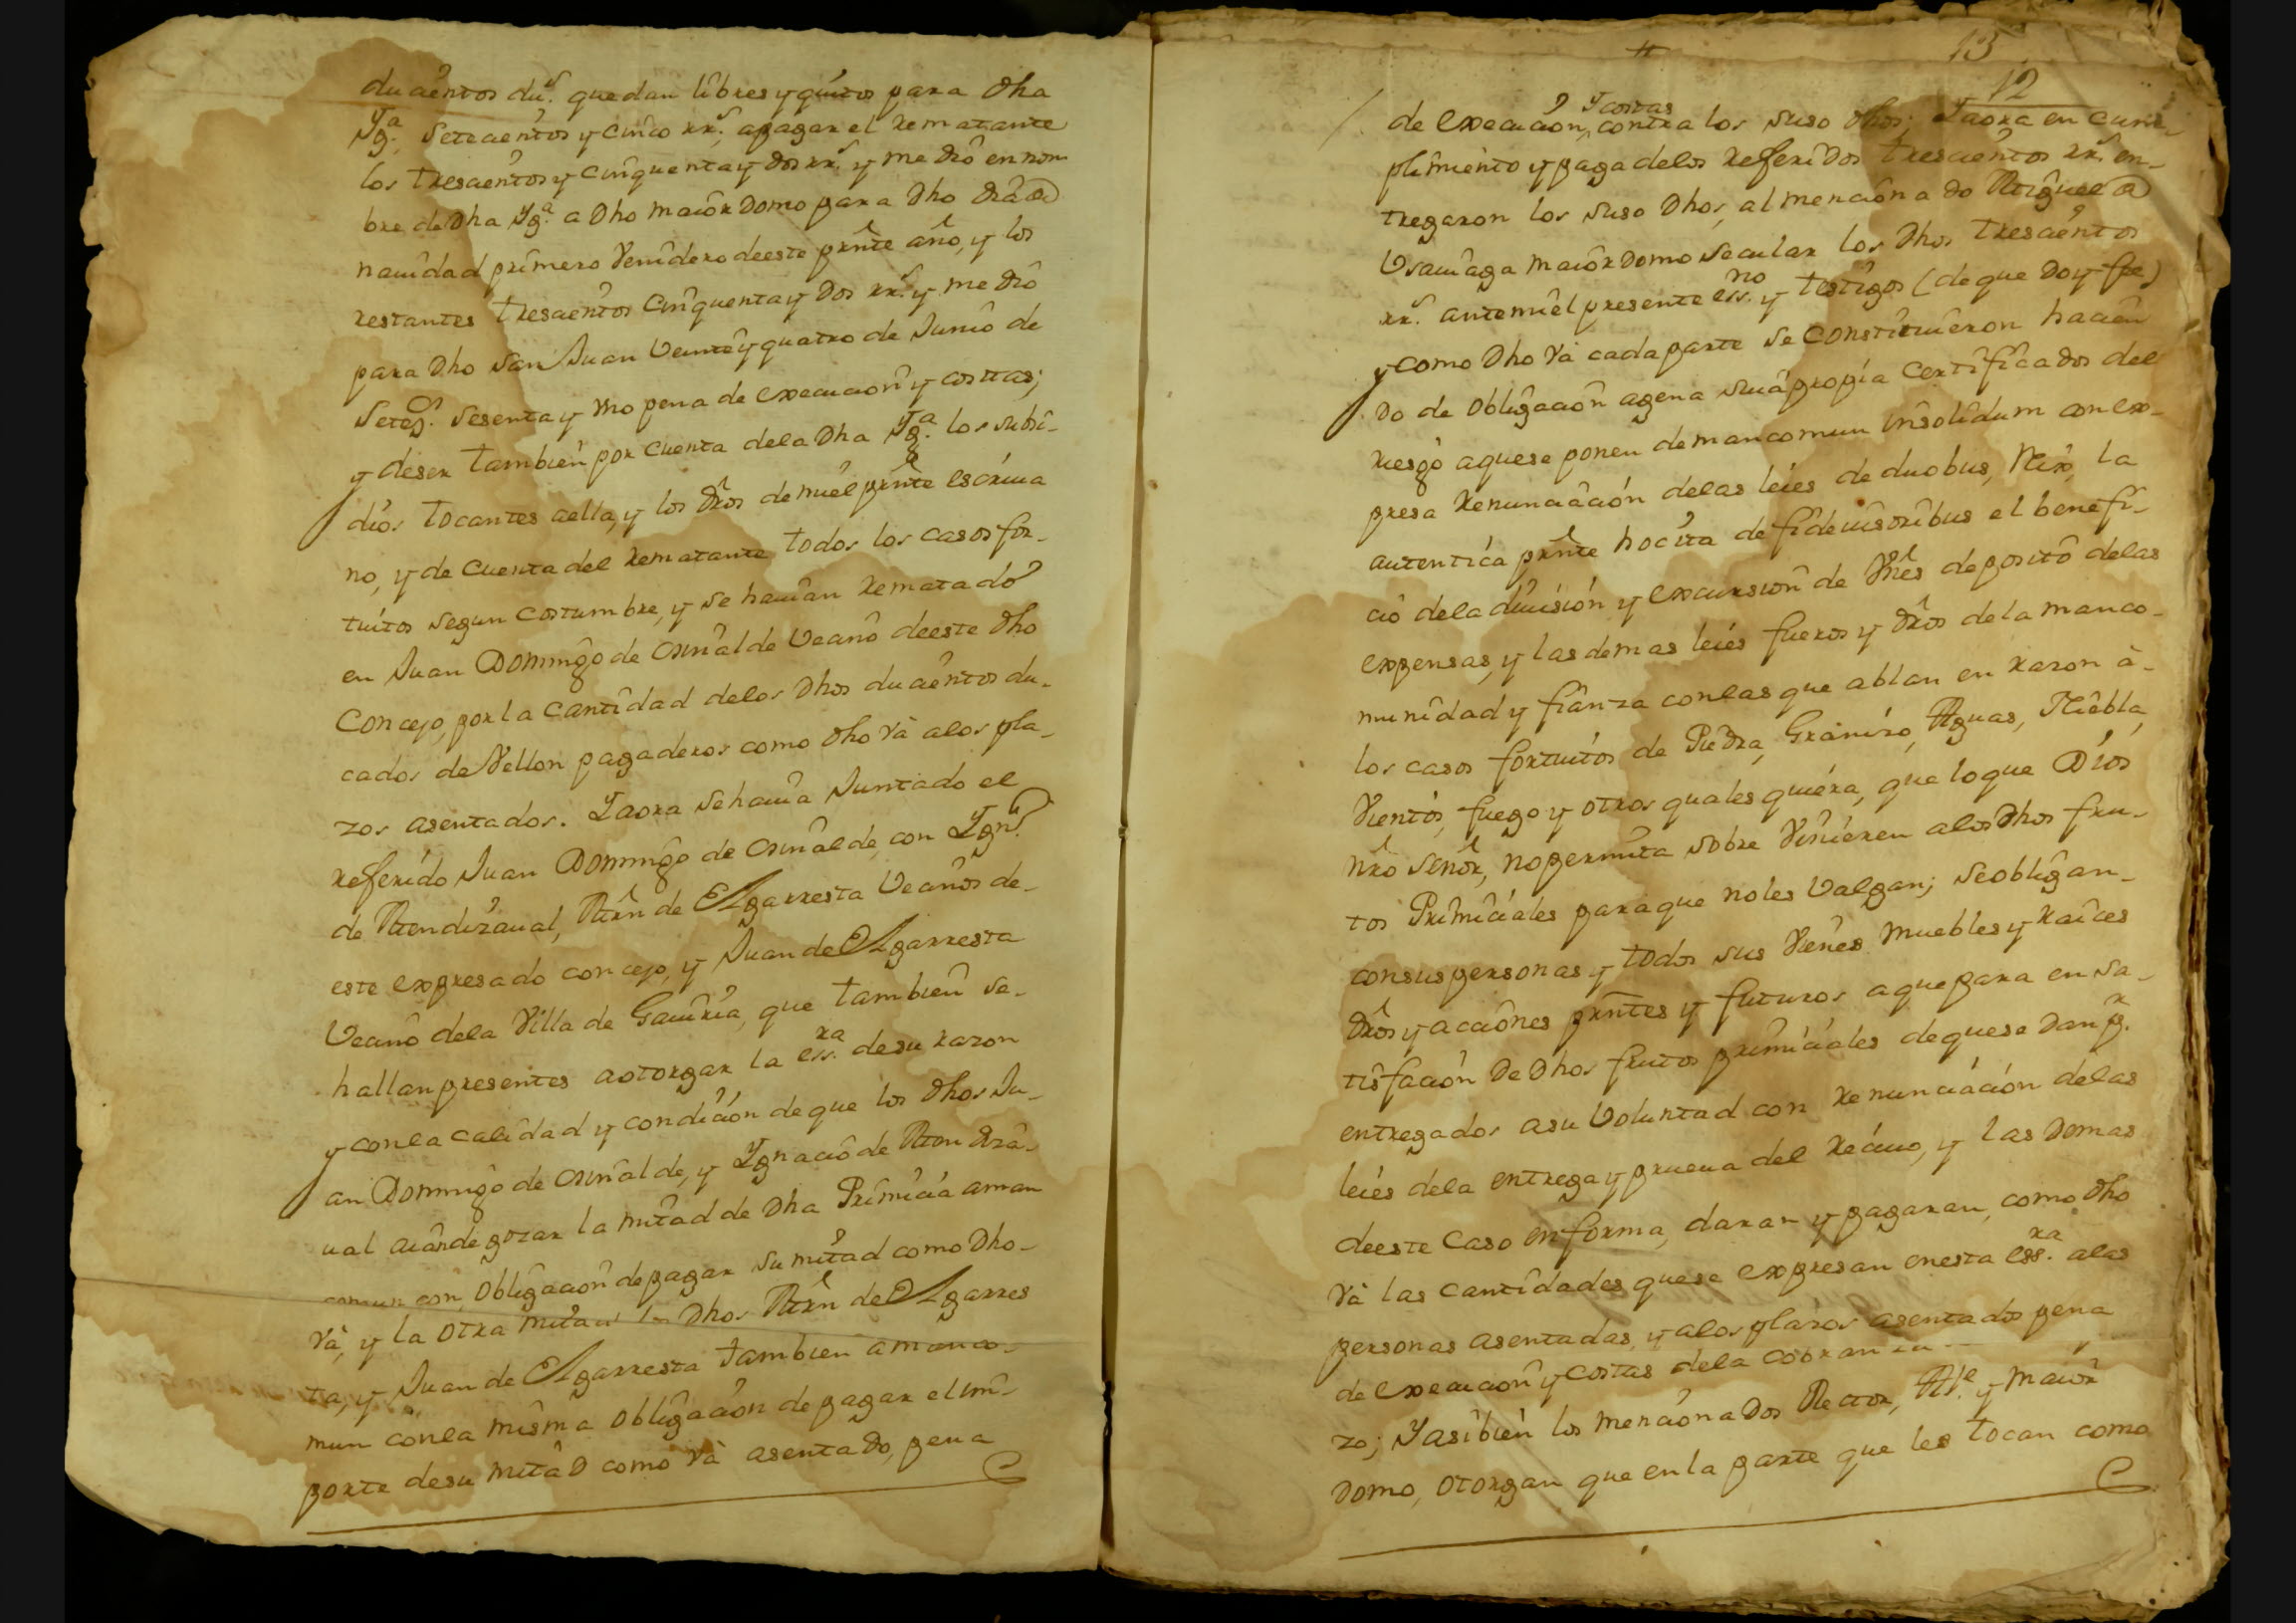 ducientos du.s quedan libres y quitos para dha
Yg.a, setecientos y cinco rr.s, a pagar el rematante
los trescientos y cinquenta y dos rr.s y medio en nom
bre de Dha Yg.a a Dho maiordomo para Dho dia de
nauidad primero Venidero de este prnte año, y los
restantes trescientos cinquenta y dos rr.s y medio
para Dho San Juan Veinte y quatro de Junio de
Seteg.s Sesenta y uno pena de execucion y costas;
y deser tambien por cuenta dela Dha Yg.a los subsi-
dios tocantes aella, y los dros de mi el prnte escriua
no, y de cuenta del rematante todos los casos for-
tuitos segun costumbre, y se hauian rematado
en Juan Domingo de Osinalde Vecino deeste dho
Concejo, por la cantidad delos Dhos ducientos du-
cados de Vellon pagaderos como dho và alos pla-
zos asentados. Yaora sehauia Juntado el
referido Juan Domingo de Osinalde, con Ygn.o
de Mendizaual, Mrn de Elgarresta Vecinos de-
este expresado concejo, y Juan de Elgarresta
Vecino dela Villa de Gauiria, que tambien se-
hallan presentes aotorgar la ess.ra desu razon
y conla calidad y condicion de que los dhos Ju-
an Domingo de Osinalde, y Ygnacio de Mendiza-
ual aiande gozar la mitad de Dha Primicia aman
comun con, obligacion de pagar su mitad como Dho-
và, y la otra mitad los Dhos Mrn de Elgarres
ta, y Juan de Elgarresta tambien amanco-
mun conla misma obligacion de pagar el im-
porte desu mitad como và asentado, pena
13
12
Ycostas
de execucion, contra los suso dhos; Yaora en cum-
plimiento y paga delos referidos trescientos rr.s en-
tregaron los suso Dhos, al mencionado Miguel de
Vsauiaga maiordomo secular los Dhos trescientos
rr.s antemi el presente ess.no y testigos (de que doy fee)
y como Dho và cada parte se constituieron hacien
do de obligacion agena suia propia certificados del
riesgo aquese ponen demancomun insolidum con ex-
presa renunciacion delas leies de duobus, Rex, la
autentica prnte hocita de fideiusoribus el benefi-
cio dela diuision y excursion de Vnes deposito delas
expensas, y las demas leies fueros y dros de la manco-
munidad y fianza conlas que ablan en razon à-
los casos fortuitos de Piedra, Graniso, Aguas, Niebla,
Vientos, fuego y otros quales quiera, que loque Dios
nro señor, nopermita sobre Vinieren alos Dhos fru-
tos Primiciales paraque noles Valgan; se obligan-
consus personas y todos sus Vienes muebles y raices
dros y acciones prntes y futuros aquepara en sa-
tisfacion De Dhos frutos primiciales dequese dan p.r
entregados asu Voluntad con renunciacion delas
leies dela entrega y prueua del reciuo, y las demas
deeste caso en forma, daran y pagaran, como dho
và las cantidades quese expresan enesta ess.ra alas
personas asentadas, y alos plazos asentados pena
de execucion y costas dela cobranza
zo; Yasibien los mencionados Rector, Al.e y maior
domo, otorgan que enla parte que les tocan como